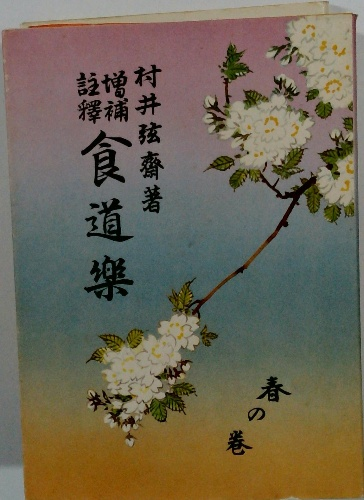 村井弦齋著
增補
註釋
食道樂
春の巻